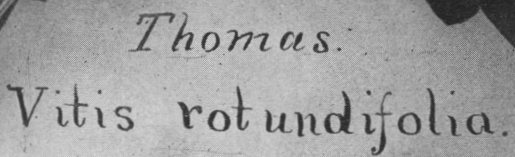 Thomas.
Vitis rotundifolia.